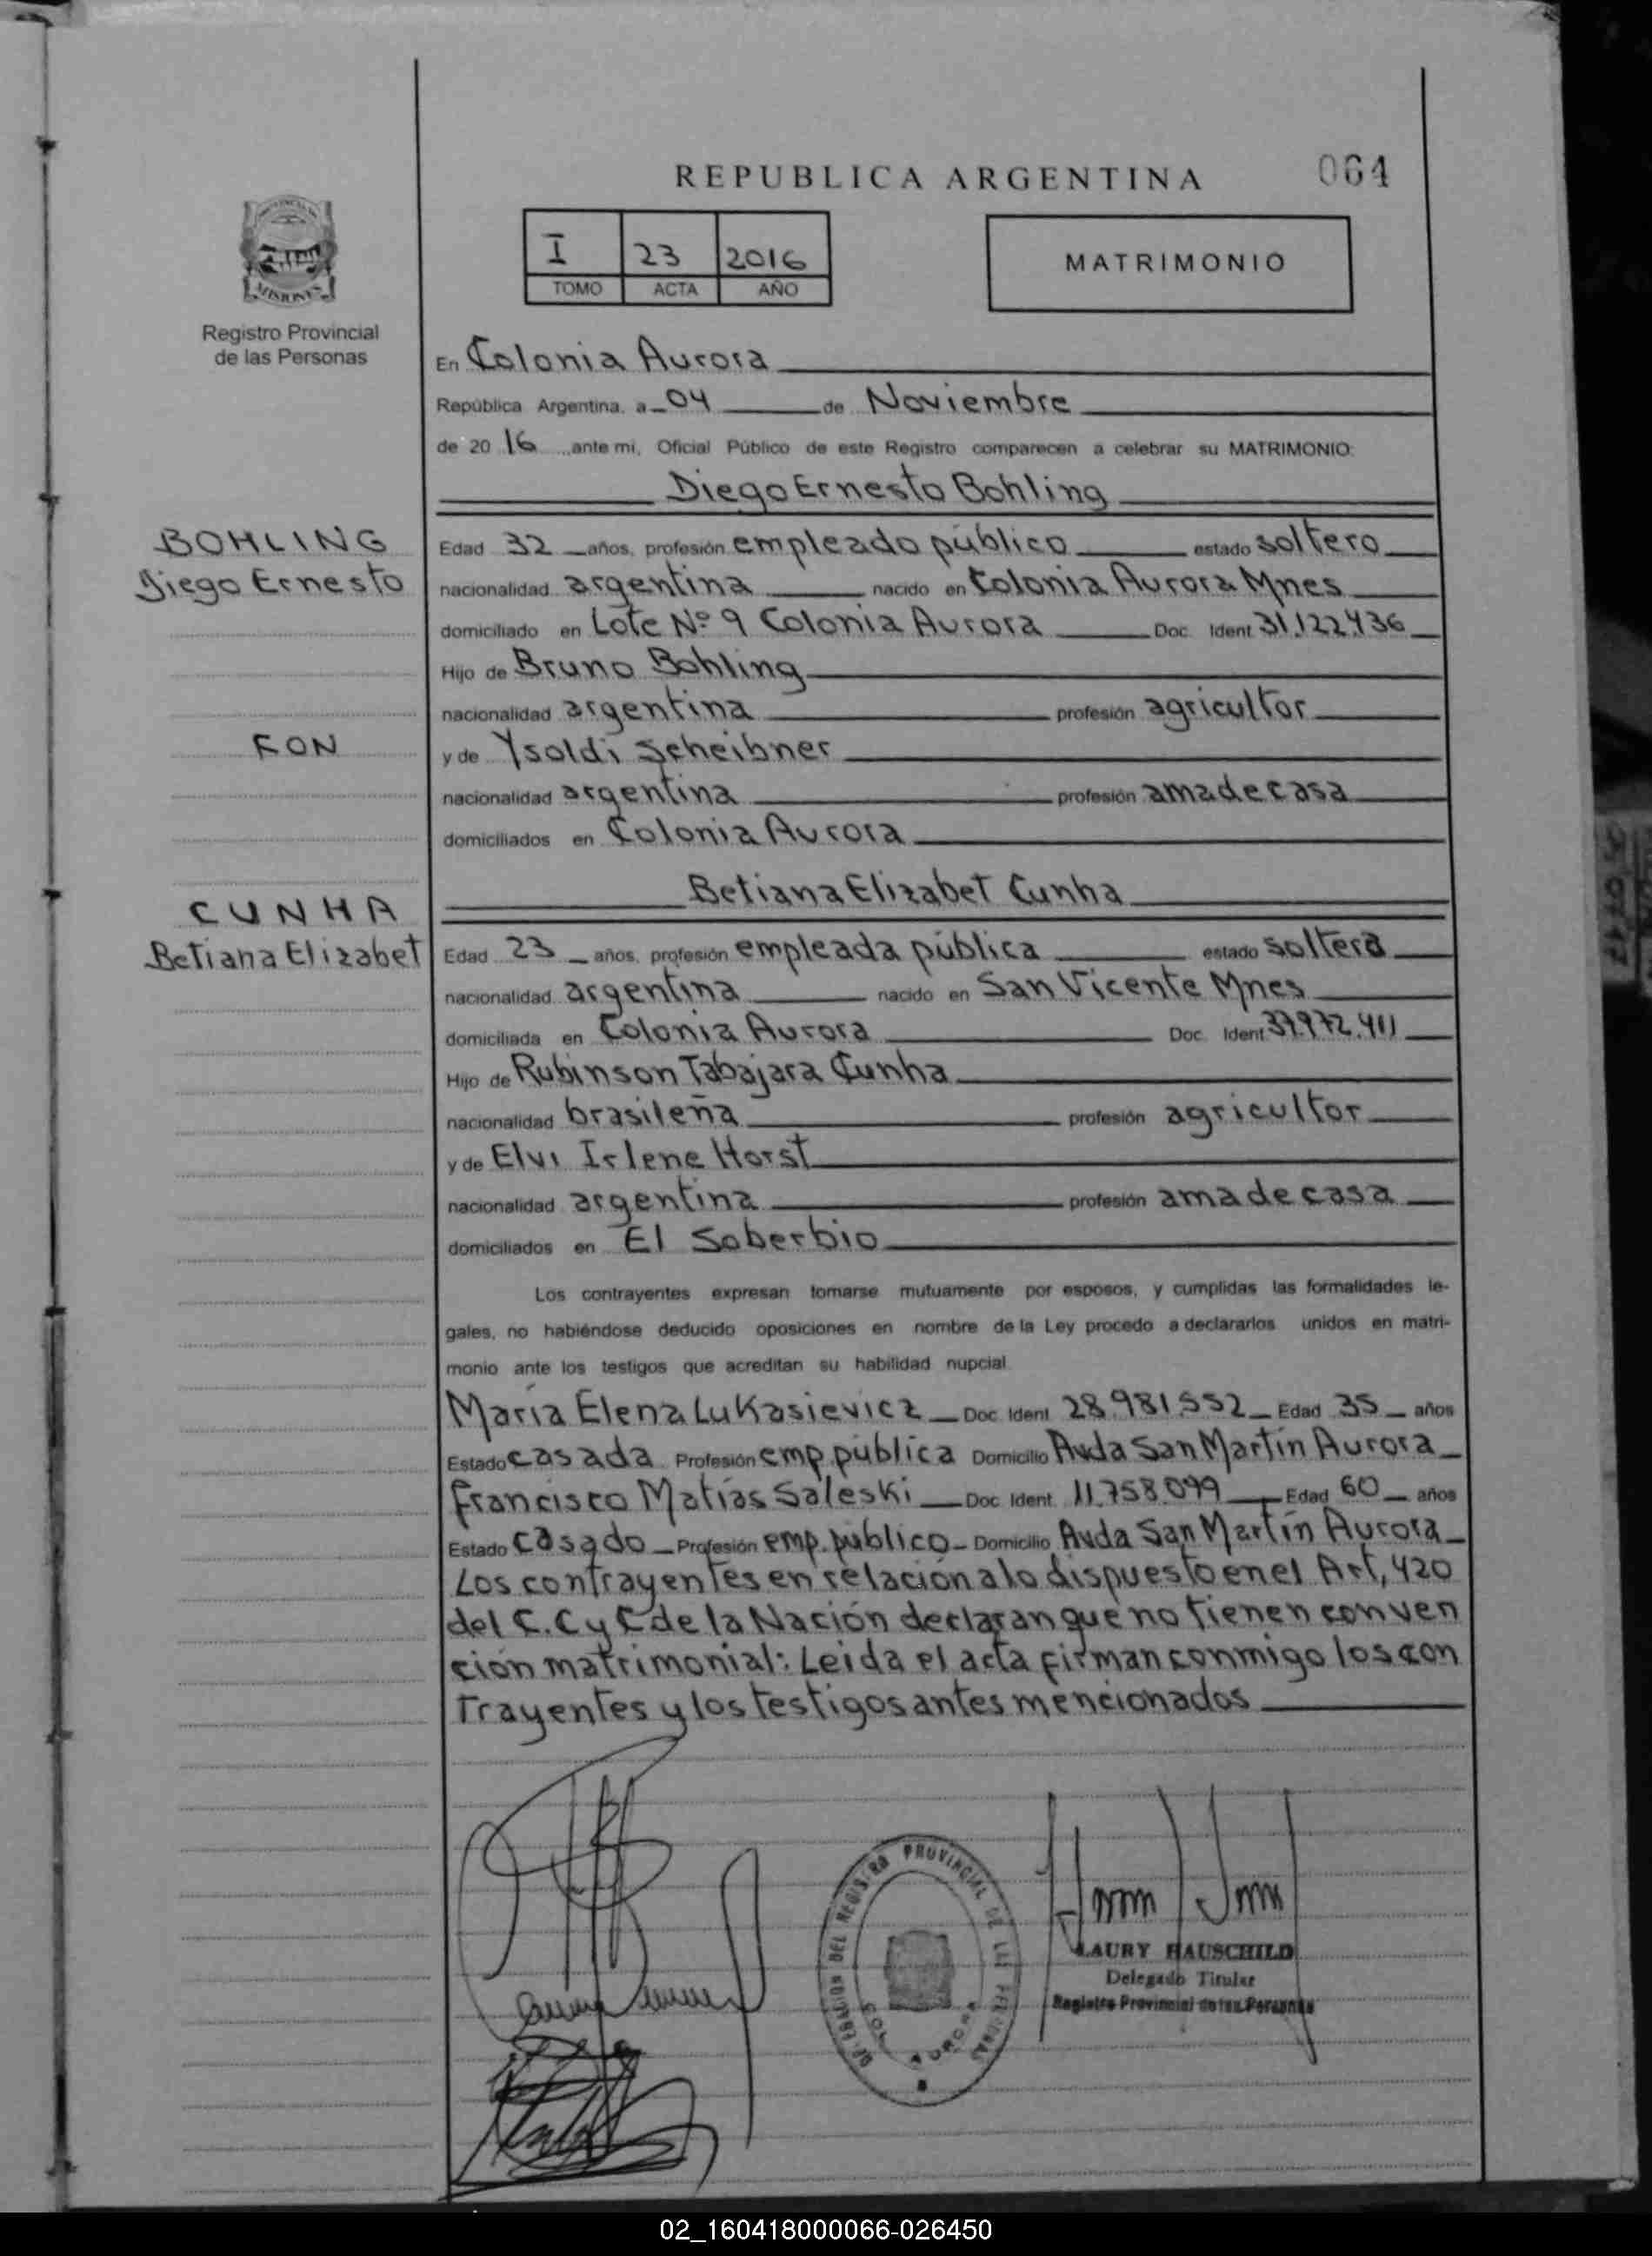 REPUBLICA ARGENTINA
064
PROVINCIA DE
MISIONES
Registro Provincial
de las Personas
I 23 2016
TOMO ACTA AÑO
MATRIMONIO
En Colonia Aurora
República Argentina, a 04 de Noviembre
de 20 16 ante mi, Oficial Público de este Registro comparecen a celebrar su MATRIMONIO:
Diego Ernesto Bohling
BOHLING
Diego Ernesto
Edad 32 años, profesión empleado público estado soltero
nacionalidad argentina nacido en Colonia Aurora Mnes
domiciliado en Lote Nº 9 Colonia Aurora Doc. Ident. 31.122.436
Hijo de Bruno Bohling
nacionalidad argentina profesión agricultor
CON
y de Ysoldi Scheibner
nacionalidad argentina profesión ama de casa
domiciliados en Colonia Aurora
Betiana Elizabet Cunha
CUNHA
Betiana Elizabet
Edad 23 años, profesión empleada pública estado soltera
nacionalidad argentina nacido en San Vicente Mnes
domiciliada en Colonia Aurora Doc. Ident. 37.972.411
Hijo de Rubinson Tabajara Cunha
nacionalidad brasileña profesión agricultor
y de Elvi Irlene Horst
nacionalidad argentina profesión ama de casa
domiciliados en El Soberbio
Los contrayentes expresan tomarse mutuamente por esposos, y cumplidas las formalidades le-
gales, no habiéndose deducido oposiciones en nombre de la Ley procedo a declararlos unidos en matri-
monio ante los testigos que acreditan su habilidad nupcial
María Elena Lukasievicz Doc. Ident. 28.981.552 Edad 35 años
Estado casada Profesión emp. pública Domicilio Avda San Martín Aurora
Francisco Matías Saleski Doc. Ident. 11.758.099 Edad 60 años
Estado casado Profesión emp. público Domicilio Avda San Martín Aurora
Los contrayentes en relación a lo dispuesto en el Art, 420
del C. C y C de la Nación declaran que no tienen conven
ción matrimonial: Leida el acta firman conmigo los con
trayentes y los testigos antes mencionados
DELEGACION DEL REGISTRO PROVINCIAL DE LAS PERSONAS
COL. AURORA
LAURY HAUSCHILD
Delegado Titular
Registro Provincial de las Personas
02_160418000066-026450